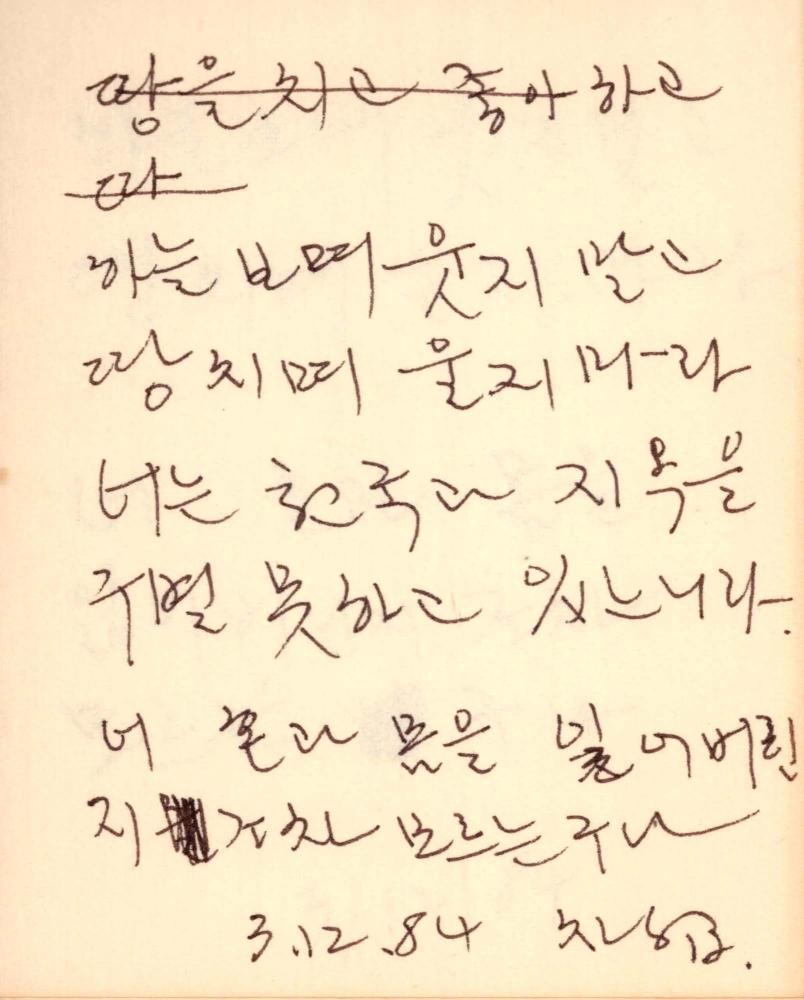 땅을 치고 좋아하고
따
하늘 보며 웃지 말고
땅 치며 울지 마라
너는 천국과 지옥을
구별 못하고 있느니라.
너 혼과 몸을 잃어버린
지 조차 모르는구나
3.12.84